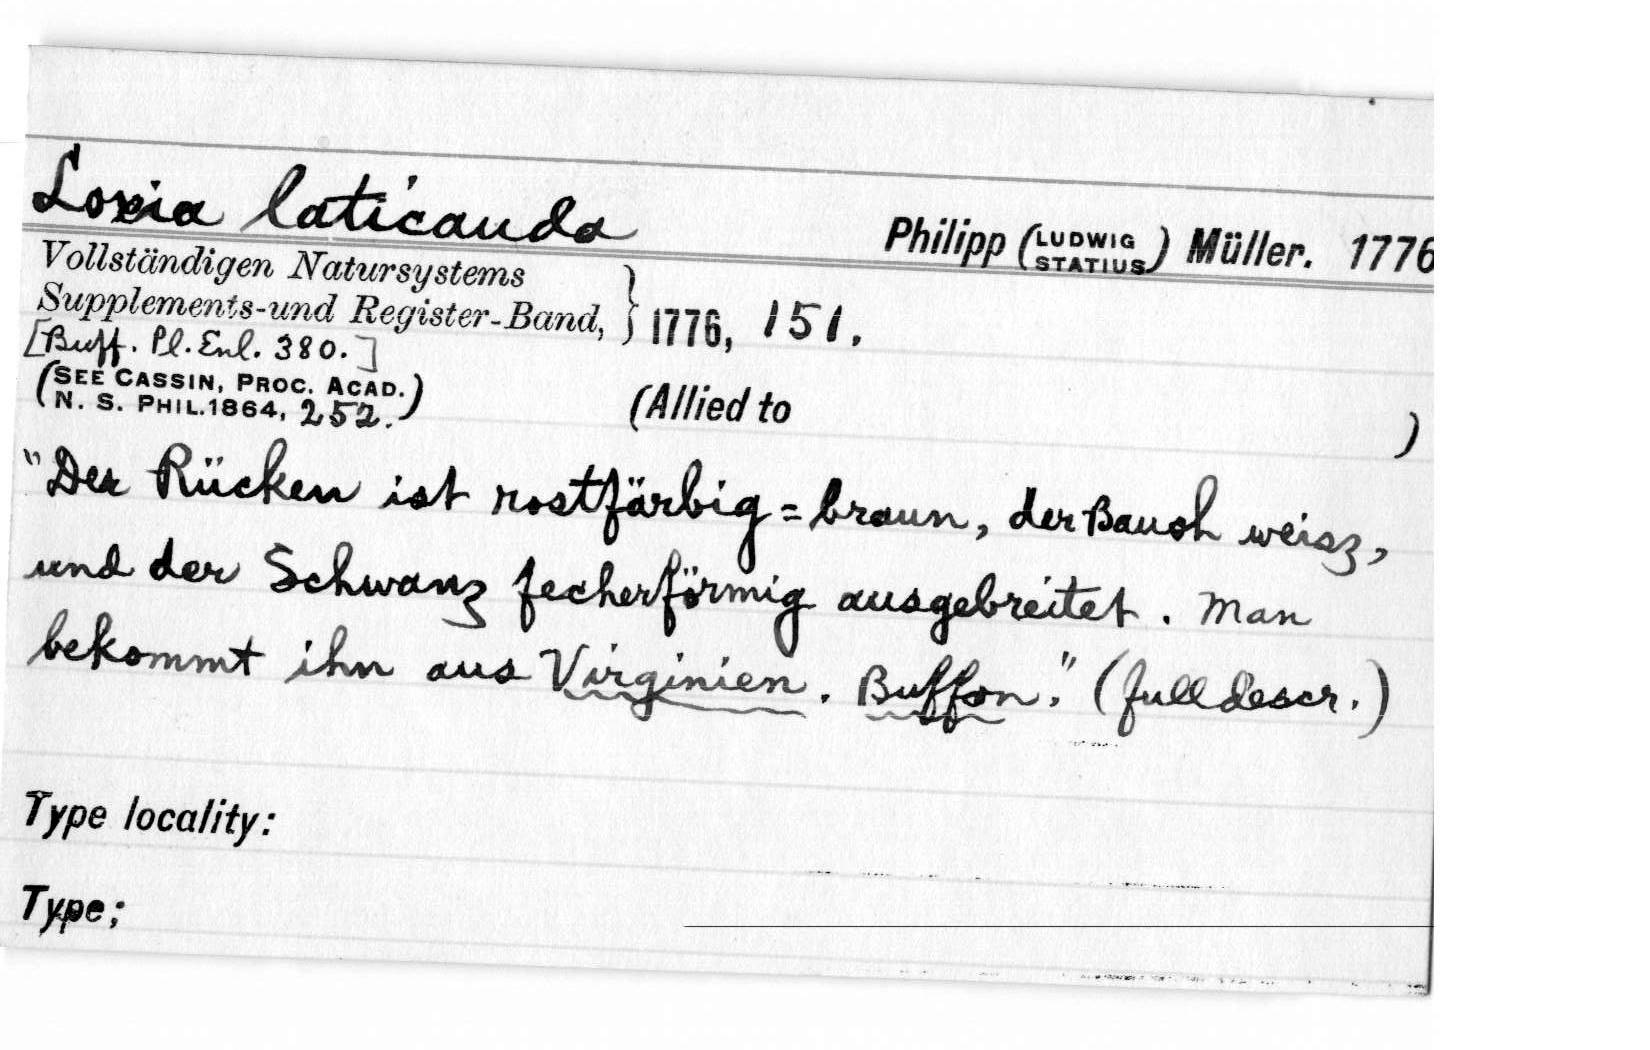 Loxia laticauda
Philipp (LUDWIG STATIUS) Müller. 1776
Vollständigen Natursystems
Supplements-und Register-Band, } 1776, 151.
[Buff. Pl. Enl. 380.]
(SEE CASSIN, PROC. ACAD.
N. S. PHIL. 1864, 252.)
(Allied to )
"Der Rücken ist rostfärbig=braun, der Bauch weisz,
und der Schwanz fecherförmig ausgebreitet. Man
bekommt ihn aus Virginien. Buffon." (full descr.)
Type locality:
Type;